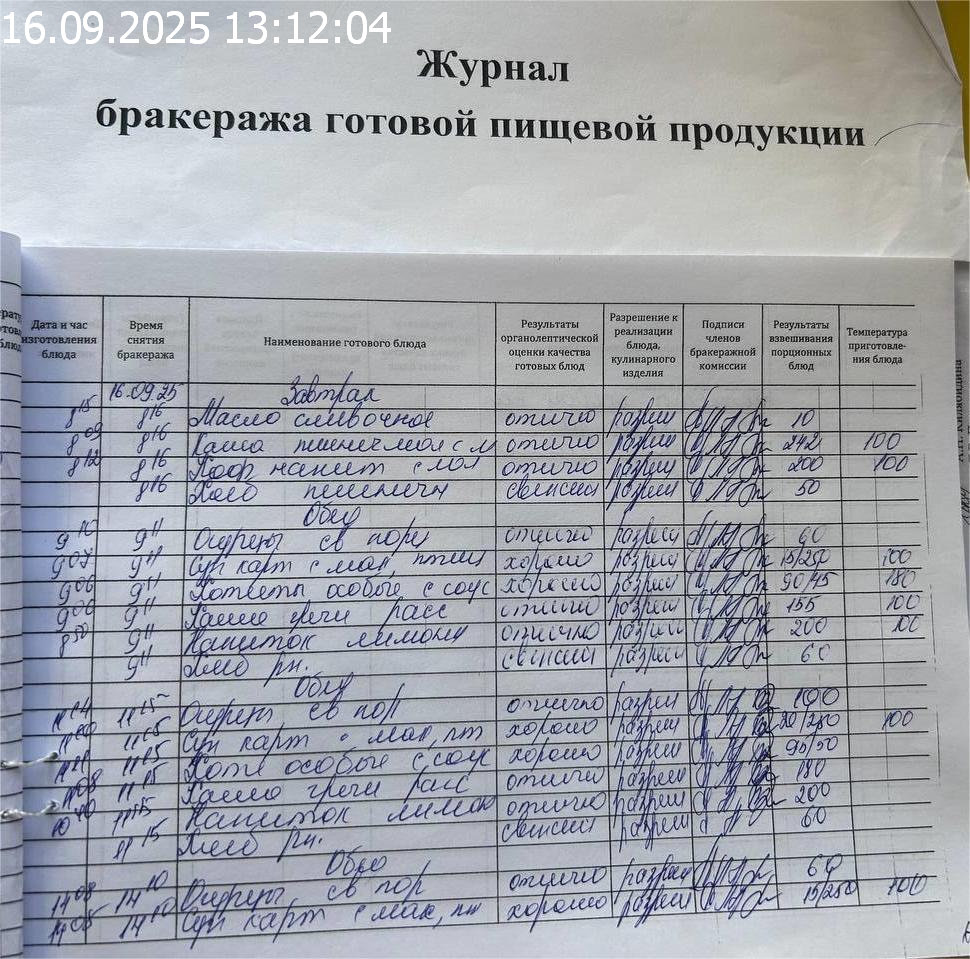 16.09.2025 13:12:04
Журнал
бракеража готовой пищевой продукции
Дата и час изготовления блюда Время снятия бракеража Наименование готового блюда Результаты органолептической оценки качества готовых блюд Разрешение к реализации блюда, кулинарного изделия Подписи членов бракеражной комиссии Результаты взвешивания порционных блюд Температура приготовле- ния блюда
16.09.25 Завтрак
8 15 8 16 Масло сливочное отлично разреш 10
8 09 8 16 Каша пшеничная с м отлично разреш 242 100
8 12 8 16 Коф напит с мол отлично разреш 200 100
8 16 Хлеб пшеничн свежий разреш 50
Обед
9 10 9 11 Огурец св порц отлично разреш 60
9 07 9 11 Суп карт с мак, птиц хорошо разреш 15/250 100
9 06 9 11 Котлеты особые с соус хорошо разреш 90/45 180
9 06 9 11 Каша гречн расс отлично разреш 155 100
8 50 9 11 Напиток лимонн отлично разреш 200 100
9 11 Хлеб рж. свежий разреш 60
Обед
11 15 Огурец св пор отлично разреш 100
Суп карт с мак, пт хорошо разреш 20/250 100
11 15 Котл особые с соус хорошо разреш 90/50
11 08 11 15 Каша гречн расс отлично разреш 180
10 40 11 15 Напиток лимон отлично разреш 200
11 15 Хлеб рж. свежий разреш 60
Обед
14 08 14 10 Огурец св пор отлично разреш 60
14 05 14 10 Суп карт с мак, пт хорошо разреш 15/250 100